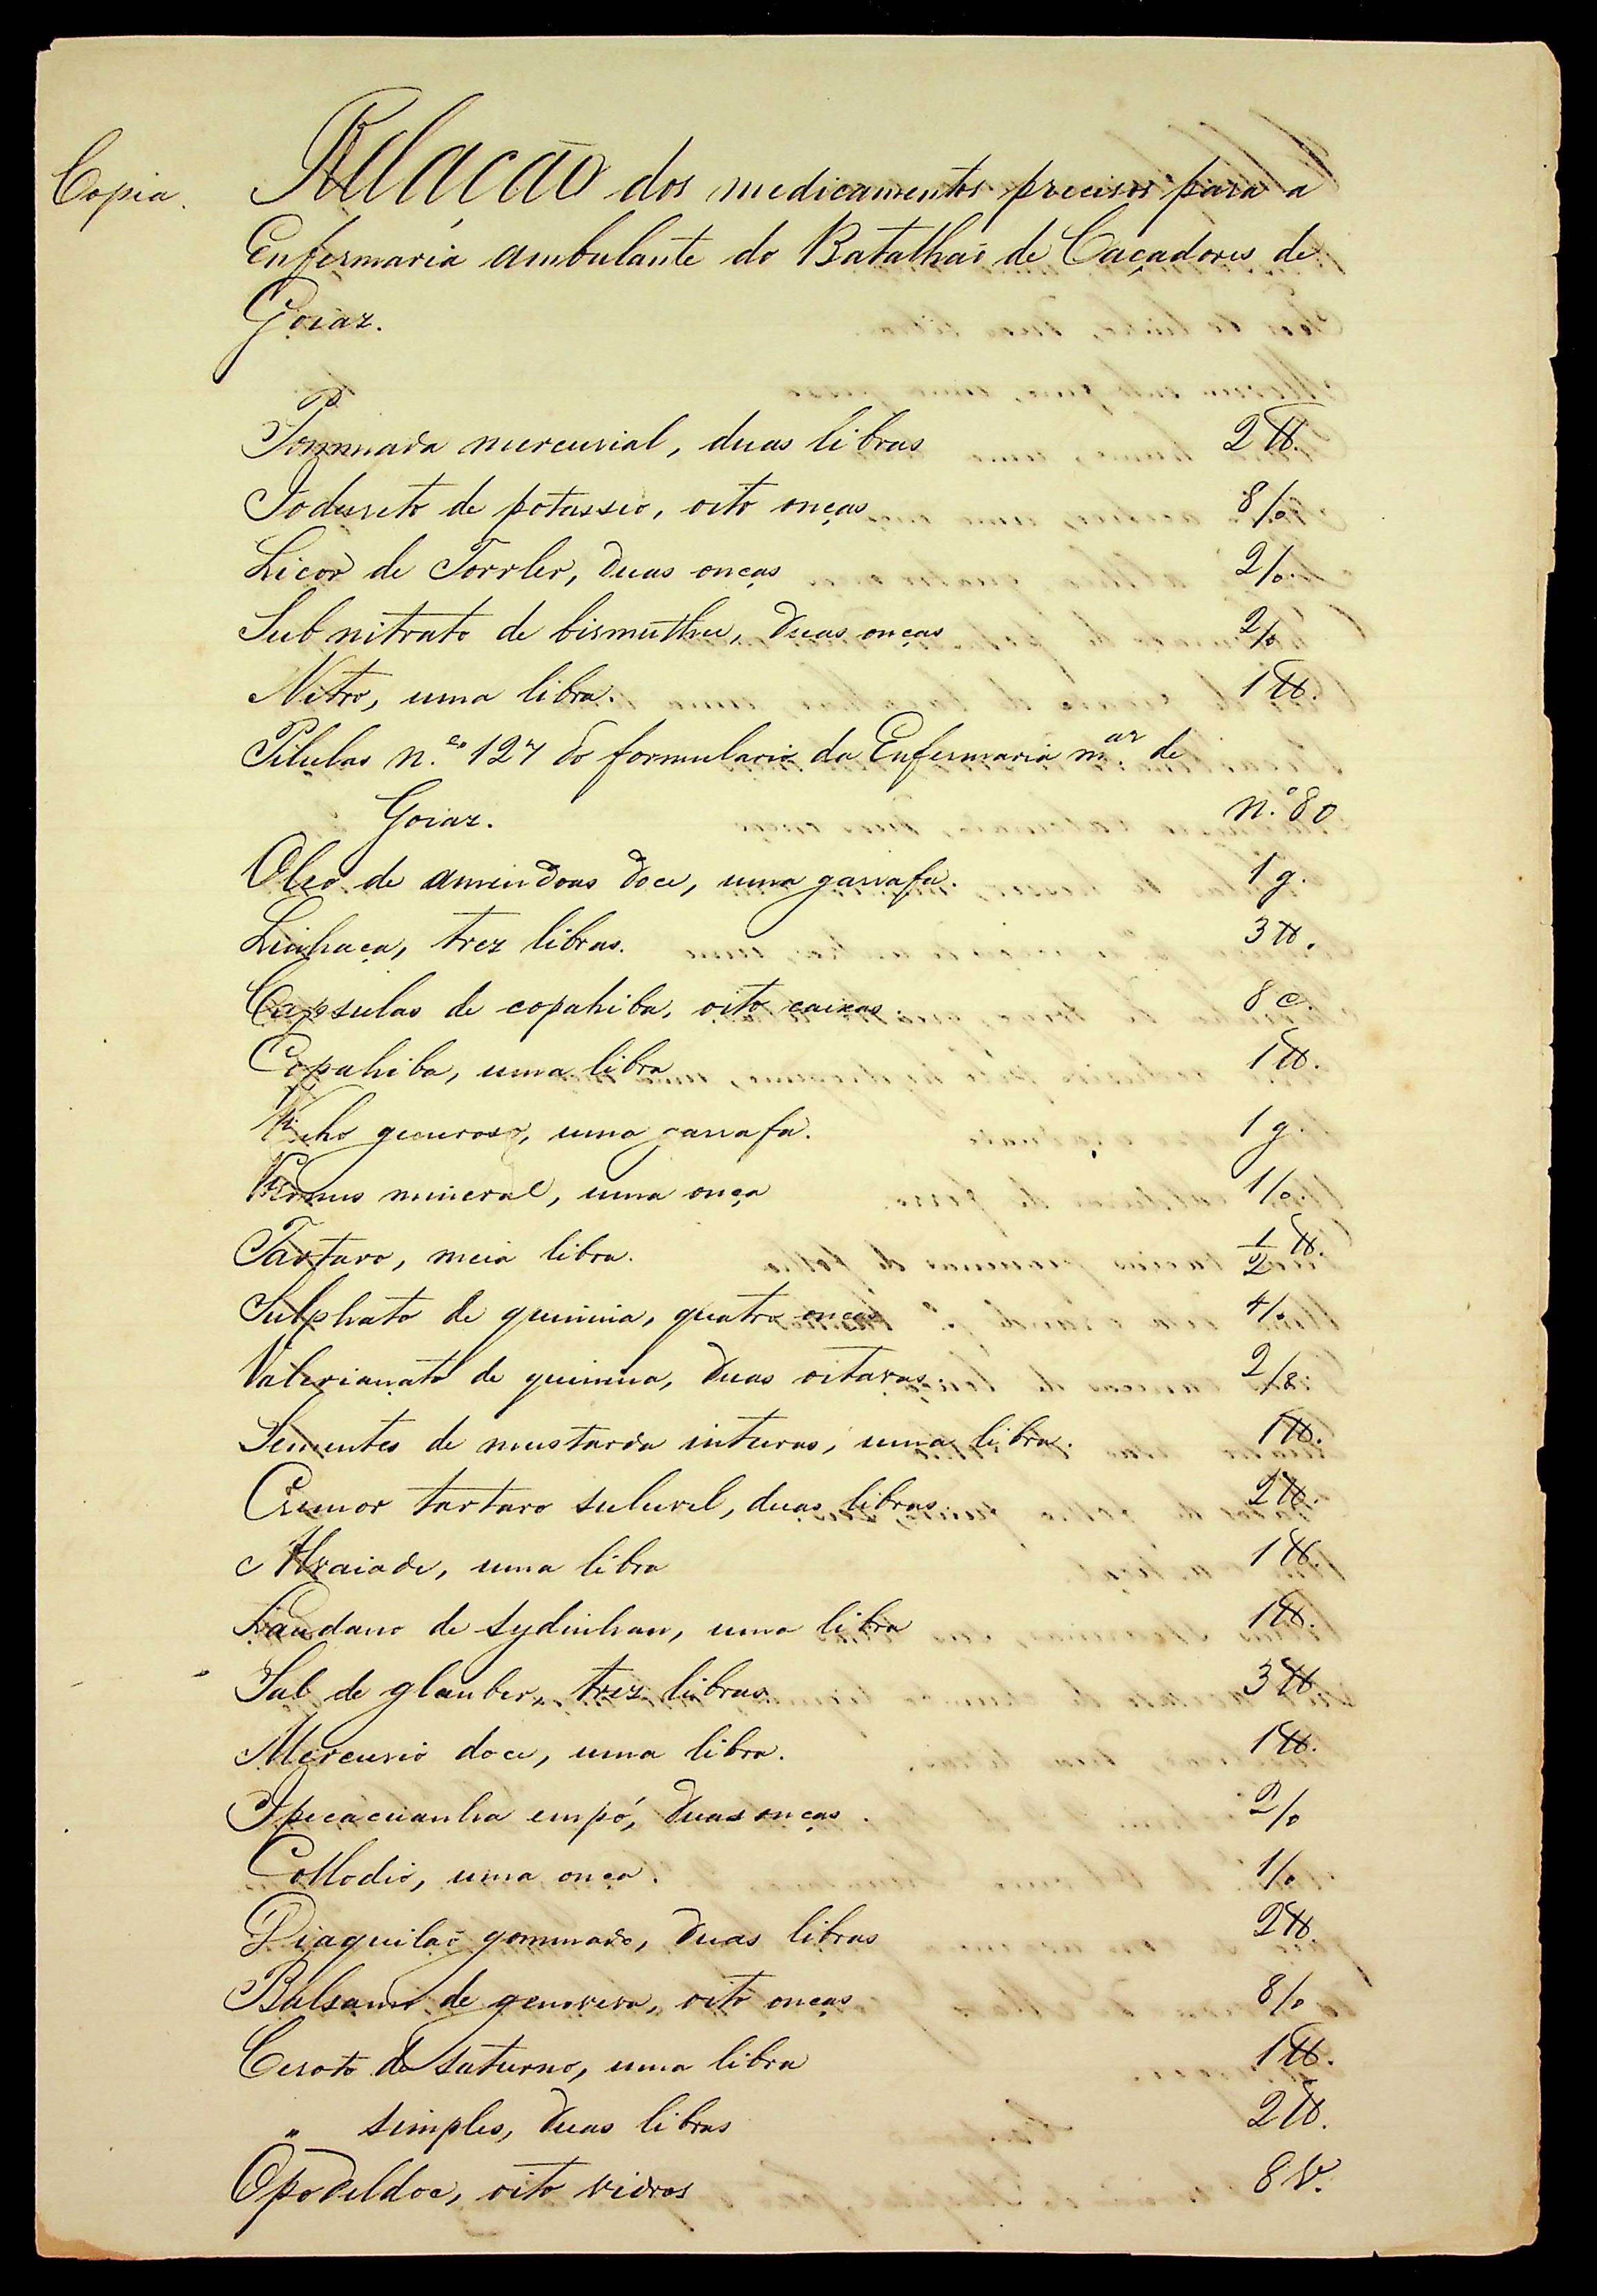 Copia.
Relação dos medicamentos precisos para a
Enfermaria ambulante do Batalhaõ de Caçadores de
Goiaz.
Pommada mercurial, duas libras 2 ℔.
Iodureto de potassio, oito onças 8/o
Licor de Forrler, duas onças 2/o.
Sub nitrato de bismuthu, duas onças 2/o
Nitro, uma libra. 1 ℔.
Pilulas n.os 127 do formulario da Enfermaria m.ar de
Goiaz. n.º 80
Oleo de amendoas doce, uma garrafa. 1 g.
Linhaça, trez libras. 3 ℔.
Capsulas de copahiba, oito caixas 8 c.
Copahiba, uma libra 1 ℔.
Vinho generoso, uma garrafa. 1 g.
Kermes mineral, uma onça 1/o.
Tartaro, meia libra. 1/2 ℔.
Sulphato de quinina, quatro onças 4/o
Valerianato de quinina, duas oitavas. 2/8
Sementes de mustarda inturas, uma libra. 1 ℔.
Cremor tartaro saluvel, duas libras. 2 ℔.
Alvaiade, uma libra 1 ℔.
Laudano de Sydinhan, uma libra 1 ℔.
Sal de glauber, trez libras 3 ℔
Mercurio doce, uma libra. 1 ℔.
Ipecacuanha empó, duas onças. 2/o
Collodio, uma onça. 1/o
Diaquilaõ gommado, duas libras 2 ℔.
Balsamo de genoveva, oito onças 8/o
Ceroto de Saturno, uma libra 1 ℔.
" simples, duas libras 2 ℔.
Opodeldoc, oito vidros 8 v.